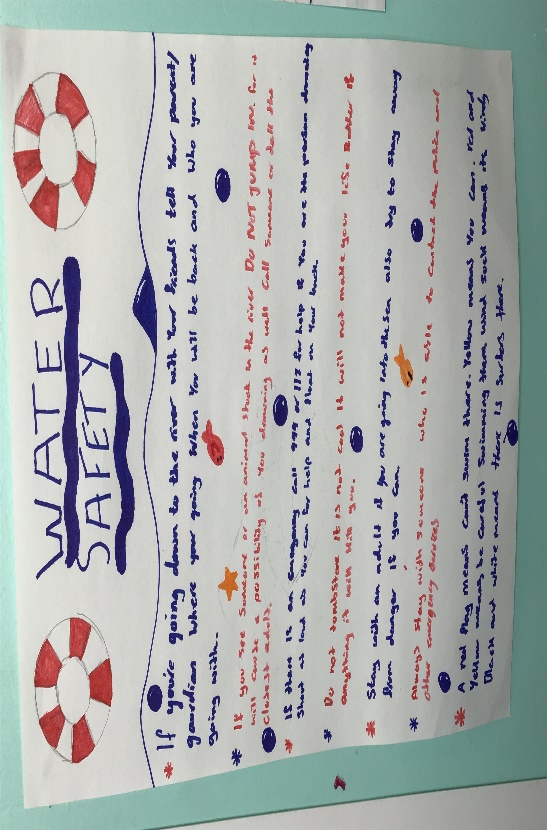 WATER
SAFETY
* If you're going down to the river with Your friends tell Your parent/
guardian where your going when You will be back and who you are
going with.
* If you see Someone or an animal Stuck in the river Do NOT Jump IN. for it
will cause a possibility of You drowning as well Call Someone or tell the
Closest adult.
* If there is an emergency Call 999 or 112 for help if You are the person drowning
Shout as loud as You can for help and float on Your back.
* Do not tombstone it is not cool it will not make your life Better if
anything it will kill you.
* Stay with an adult if You are going into the sea also try to Stay away
from danger if you can.
* Always Stay with Someone who is able to contact the public and
other emergency services
* A red flag means Can't Swim there. Yellow means You Can. Red and
Yellow means be careful Swimming there wind Sock means its windy
Black and white means there is surfers there.